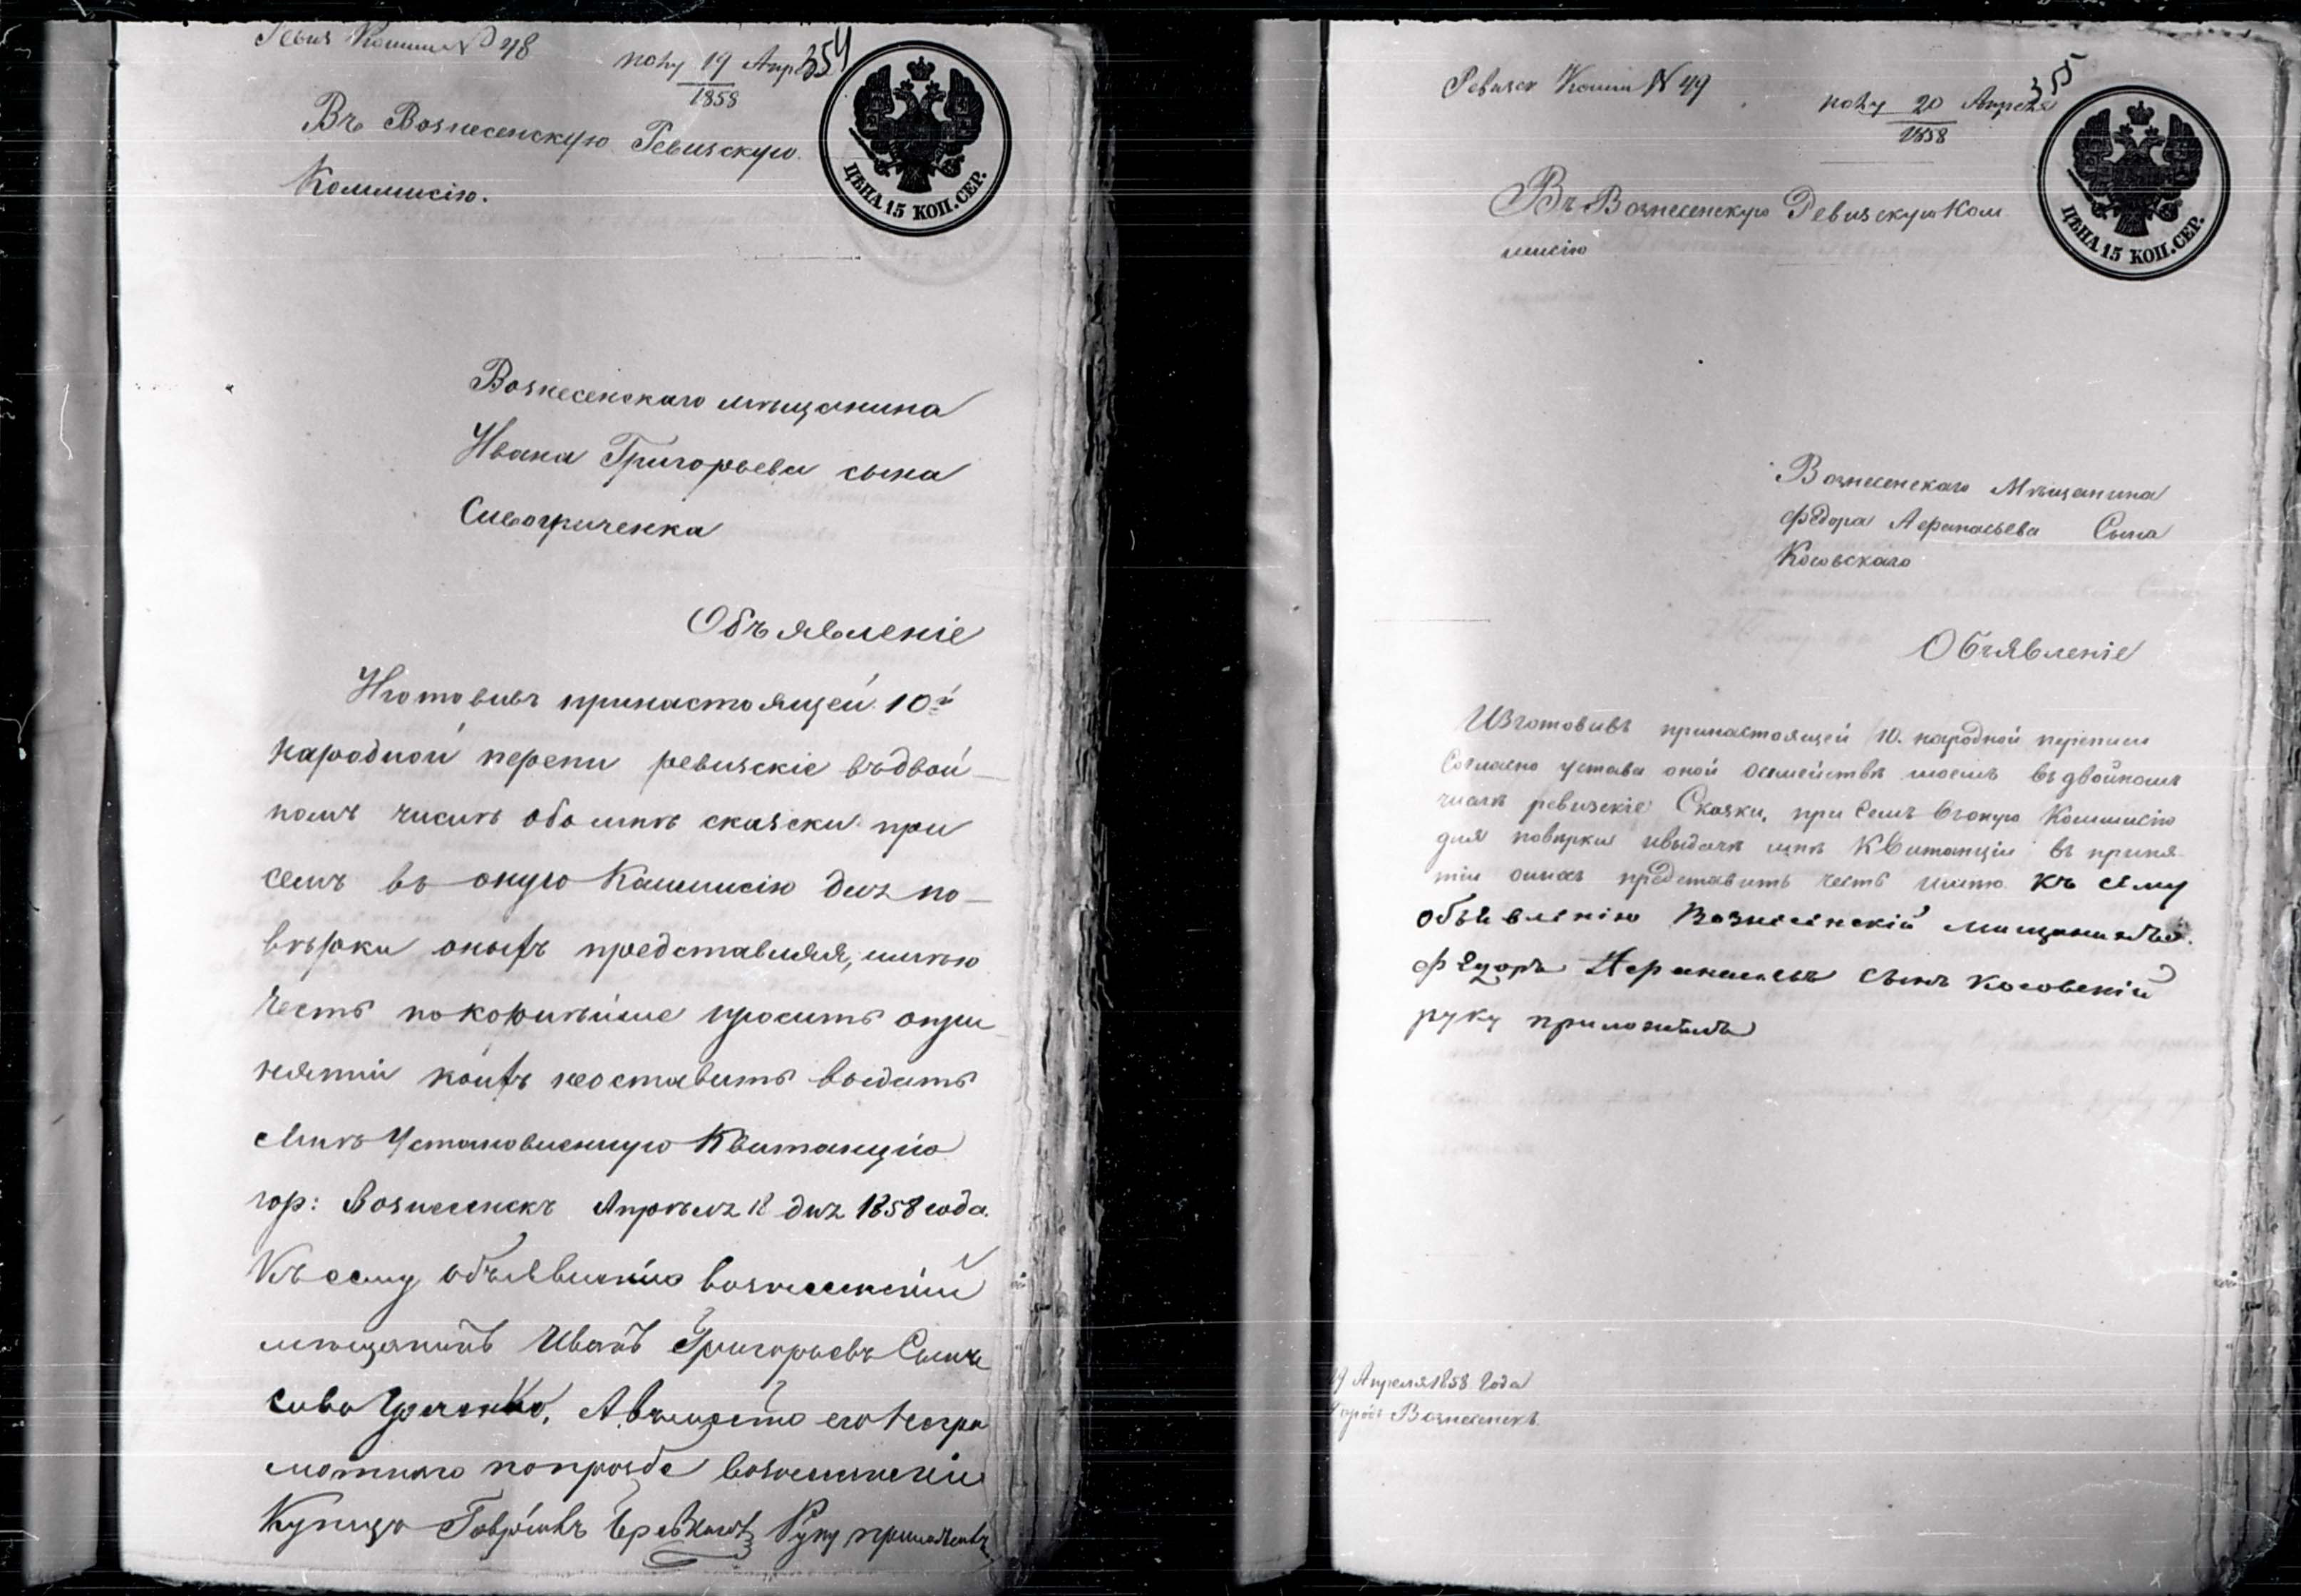 Ревиз Комми № 48
полу 19 Апреля 354
1858
Въ Вознесенскую Ревизскую
Коммисію.
ЦѢНА 15 КОП. СЕР.
Вознесенскаго мѣщанина
Ивана Григорьева сына
Сивогриченка
Объявленіе
Изготовивъ принастоящей 10й
народной перепи ревизскіе въдвой-
номъ числѣ обо мнѣ сказски при
семъ въ оную Коммисію для по-
вѣрки оныхъ представляя, имѣю
честь покорнѣйше просить опри-
нятіи коихъ неоставить выдать
мнѣ Установленную Квитанцію
гор: Вознесенскъ Апрѣля 18 дня 1858 года.
Къ сему объявленію вознесенскій
мещанинъ Иванъ Григорьевъ Сынъ
сивогриченко, А вместо его Негра
мотнаго попрозбе вознесенскій
Купецъ Гаврилъ Руку приложилъ
Ревизск Комми № 49
полу 20 Апреля 355
1858
Въ Вознесенскую Ревизскую Ком
мисію
ЦѢНА 15 КОП. СЕР.
Вознесенскаго Мѣщанина
Федора Афанасьева Сына
Косовскаго
Объявленіе
Изготовивъ принастоящей 10. народной переписи
Согласно устава оной осемействѣ моемъ въ двойномъ
числѣ ревизскіе Сказки, при семъ въоную Коммисію
для поверки ивыдачи мнѣ Квитанціи въ приня-
тіи оныхъ представить честь имѣю. Къ сему
объевленію Вознесенскій мещанинъ
Федоръ Афанасьевъ сынъ Косовскій
руку приложилъ
19 Апреля 1858 года
Городъ Вознесенскъ.